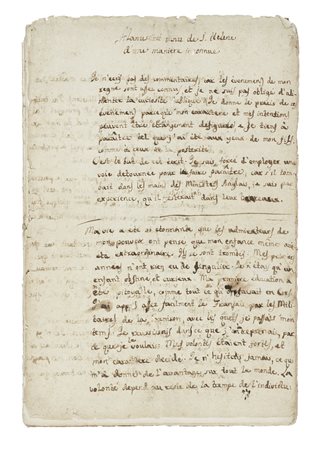 Manuscrit venu de St. Hélène
d'une manière inconnue
Je n'écris pas des commentaires, car les événemens de mon
règne sont assez connus, et je ne suis pas obligé d'ali-
menter la curiosité publique. Je donne le précis de ces
événemens parceque mon caractère et mes intentions
peuvent être étrangement defigurés & je tiens à
paraître tel que j'ai été aux yeux de mon fils
comme à ceux de la posterité.
C'est le but de cet écrit. Je suis forcé d'employer une
voie detournée pour le faire paraître, car s'il tom-
bait dans les mains des Ministres Anglais, je sais par
expérience, qu'il resterait dans leur bureaux.
Ma vie a été si étonnante que les admirateurs de
mon pouvoir ont pensé que mon enfance même avait
été extraordinaire. Ils se sont trompés. Mes premières
années n'ont rien eu de singulier. Je n'étais qu'un
enfant obstiné et curieux. Ma première éducation a
été pitoyable comme tout ce qu'on faisait en Corse
J'ai appris assez facilement le Français par les Mili-
taires de la garnison avec les quels je passais mon
tems. Je réussissais dans ce que j'entreprenais, par
ce que je le voulais. Mes volontés étaient fortes, et
mon caractère décidé. Je n'hésitais jamais, ce qui
m'a donné de l'avantage sur tout le monde. La
volonté depend au reste de la trempe de l'individu